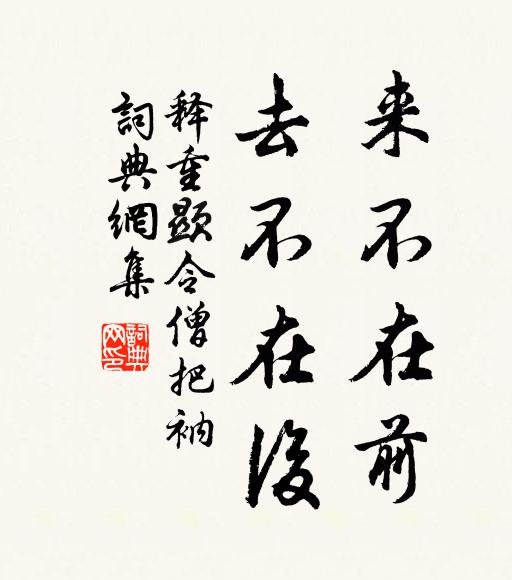 来不在前
去不在後
释重顯令僧把衲
詞典網集
詞典
网印